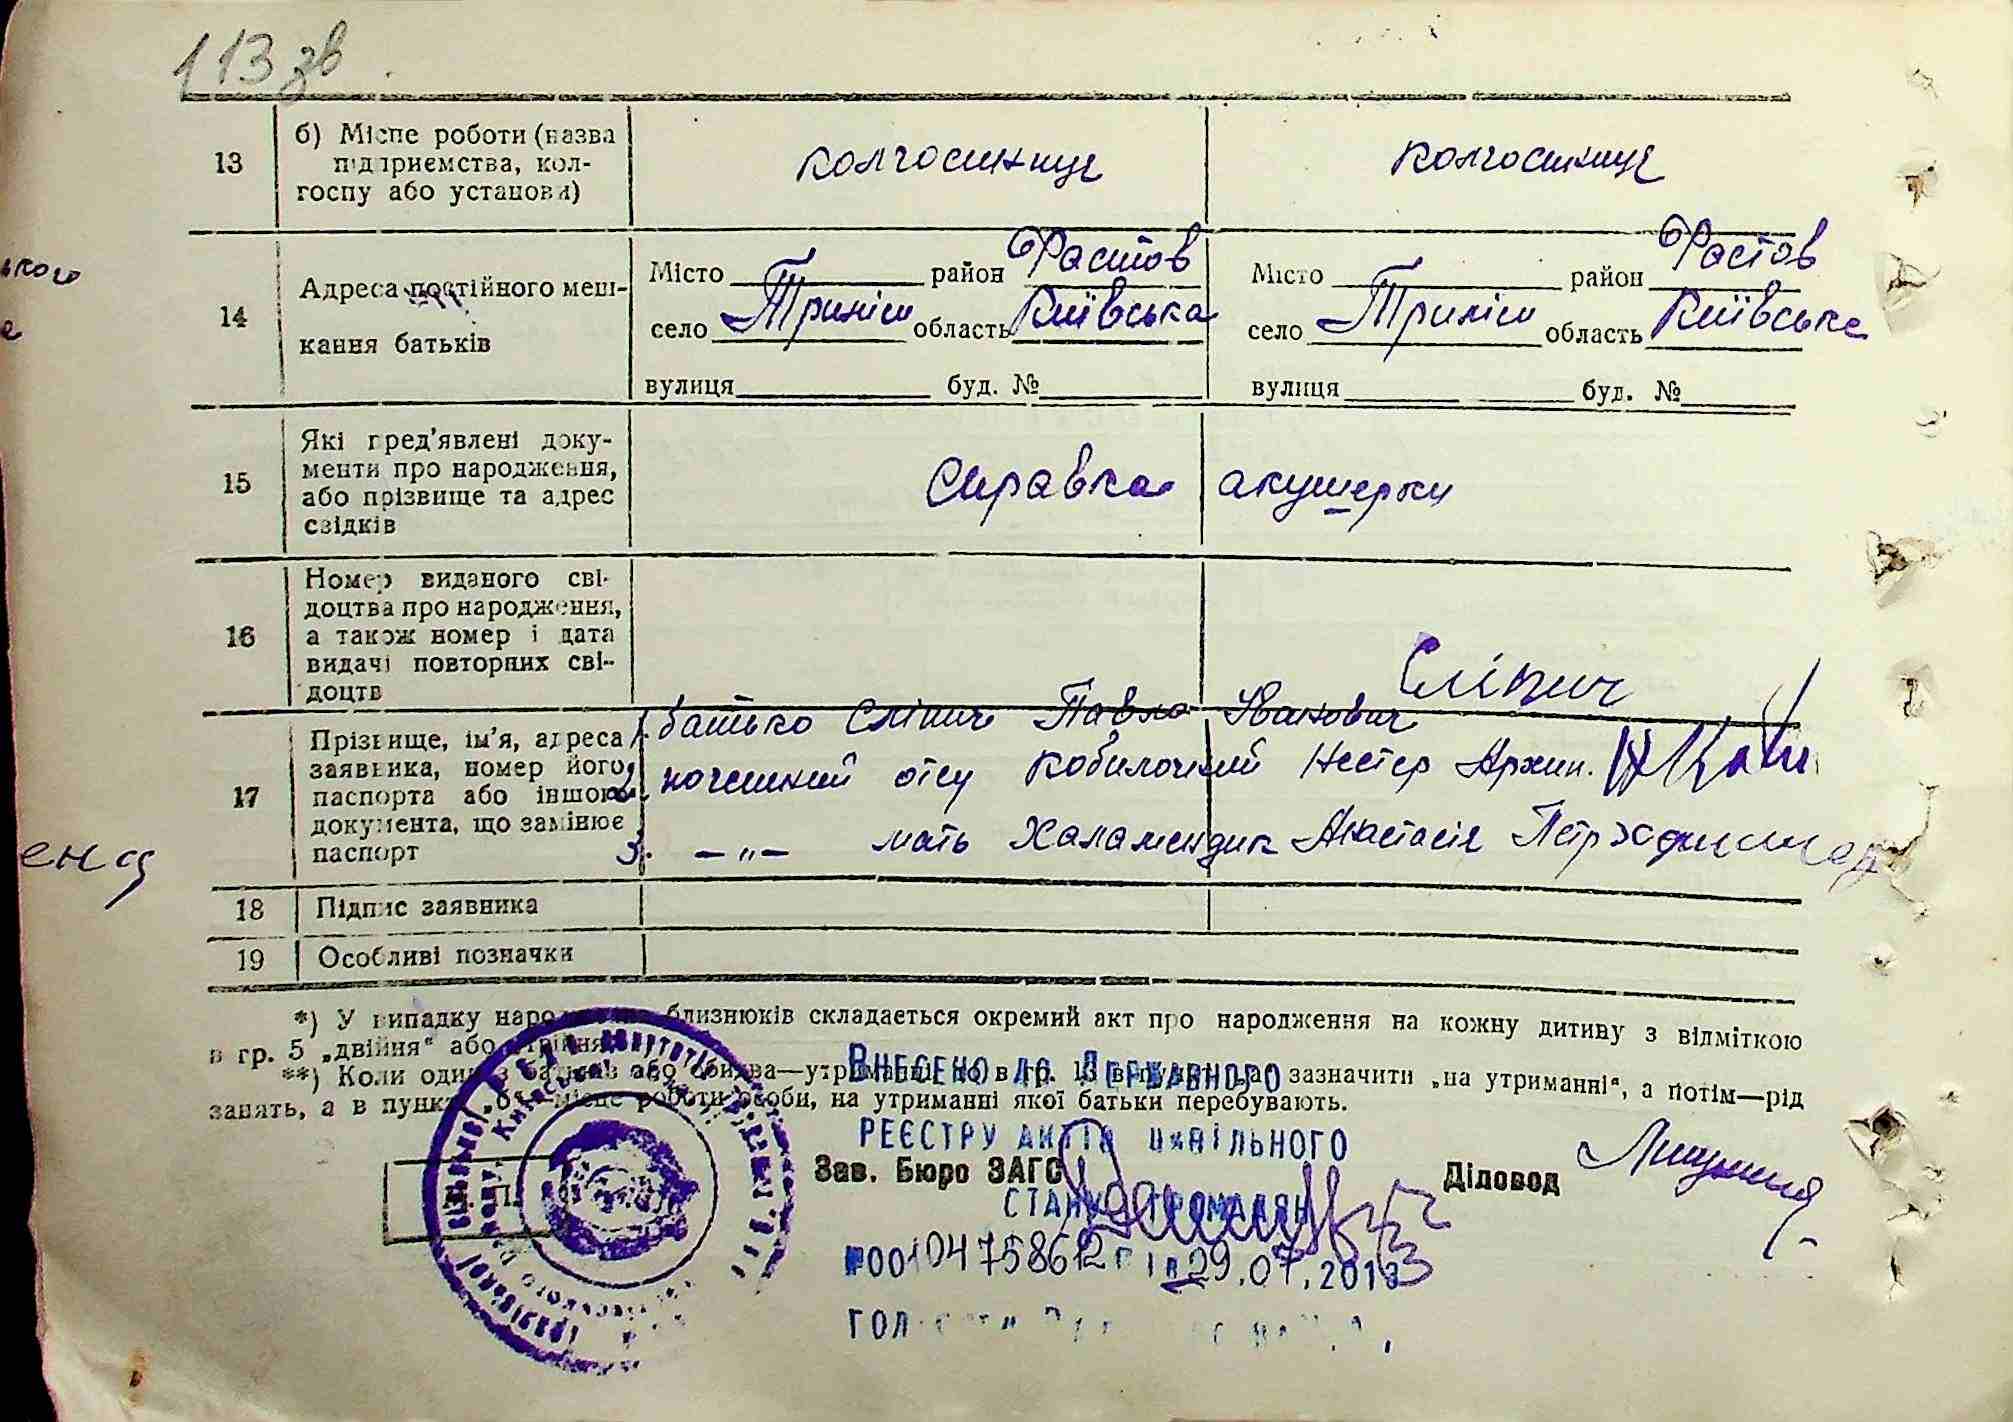 113 зв
13
б) Місце роботи (назва
підприємства, кол-
госпу або установи)
колгоспниця
колгоспниця
14
Адреса постійного меш-
кання батьків
Місто район Фастов
село Триліси область Київська
вулиця буд. №
Місто район Фастов
село Триліси область Київська
вулиця буд. №
ького
15
Які пред'явлені доку-
менти про народження,
або прізвище та адрес
свідків
Справка акушерки
16
Номер виданого сві-
доцтва про народження,
а також номер і дата
видачі повторних сві-
доцтв
17
Прізвище, ім'я, адреса
заявника, номер його
паспорта або іншого
документа, що замінює
паспорт
1. батько Сліпич Павло Іванович Сліпич
2. почешний отец Кобилоч Нестер Архип.
3. — „ — мать Халамендик Анастасія Петр
ена
18
Підпис заявника
19
Особливі позначки
*) У випадку народження близнюків складається окремий акт про народження на кожну дитину з відміткою
в гр. 5 „двійня“ або „трійня“.
**) Коли один з батьків або обидва—утриманці, то в гр. 13 зазначити „на утриманні“, а потім—рід
занять, а в пункті „б“—місце роботи особи, на утриманні якої батьки перебувають.
ВНЕСЕНО ДО ДЕРЖАВНОГО
РЕЄСТРУ АКТІВ ЦИВІЛЬНОГО
СТАНУ ГРОМАДЯН
Зав. Бюро ЗАГС
Діловод
№00104758612 від 29.07.2013